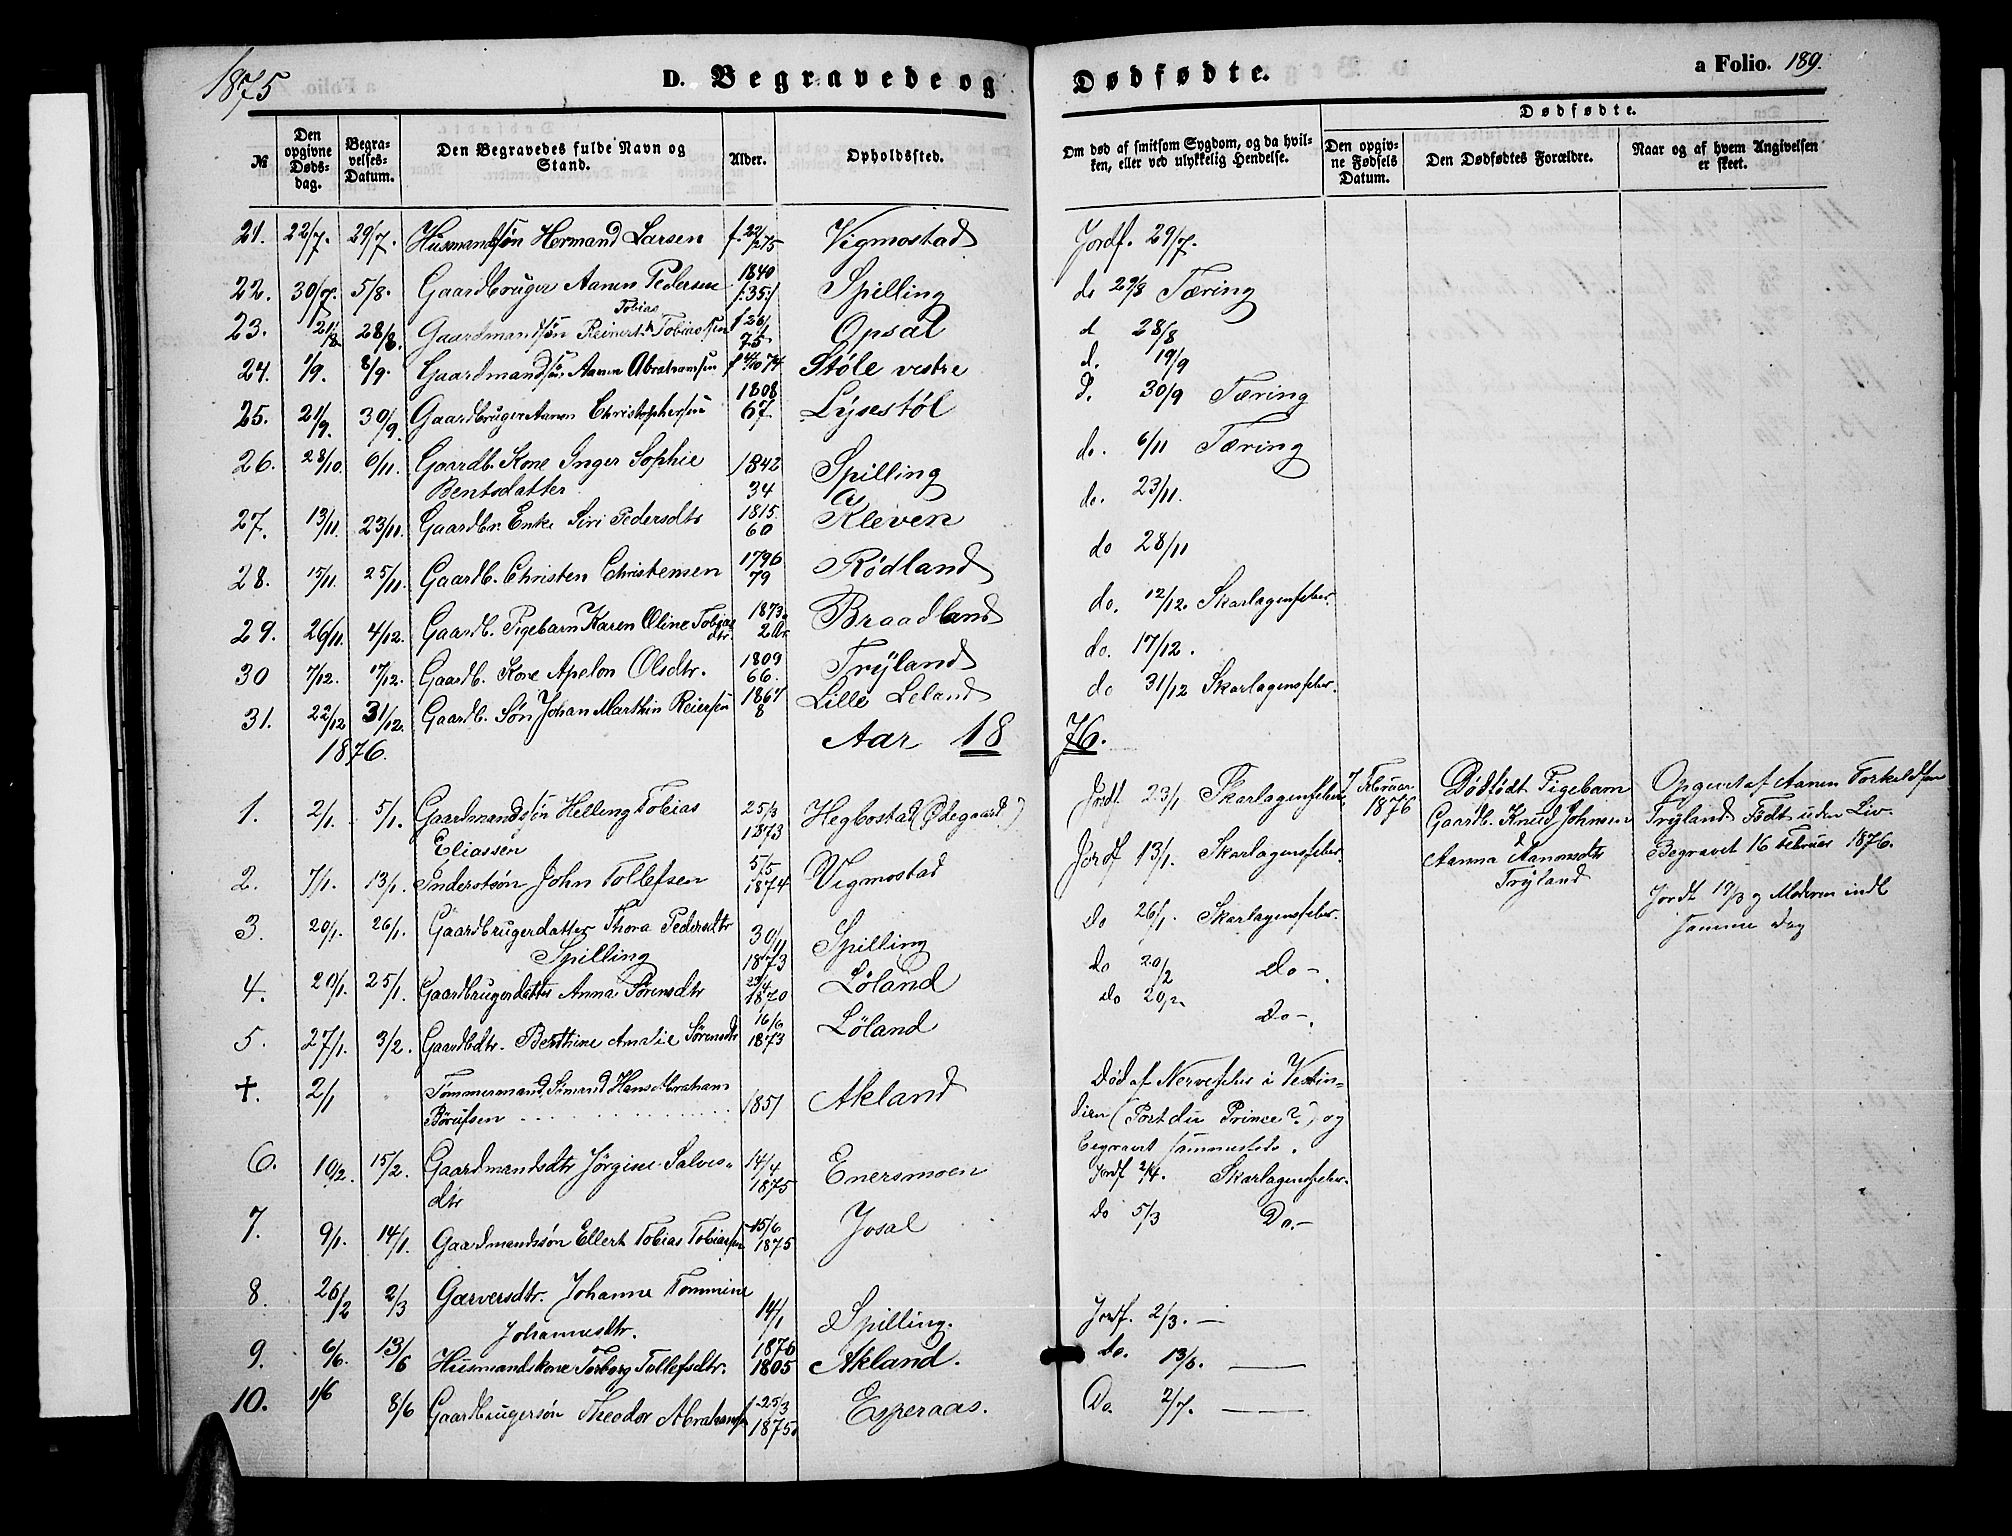 1875
D. Begravede og Dødfødte.
a Folio. 189.
№
Den opgivne Døds-dag.
Begra-velses-Datum.
Den Begravedes fulde Navn og Stand.
Alder.
Opholdssted.
Om død af smitsom Sygdom, og da hvil-ken, eller ved ulykkelig Hendelse.
Dødfødte.
Den opgiv-ne Fødsels Datum.
Den Dødfødtes Forældre.
Naar og af hvem Angivelsen er skeet.
21. 22/7. 29/7. Husmandssøn Hermand Larsen Vigmostad Jordf. 29/7.
22. 30/7. 5/8. Gaardbruger Aanen Pedersen 1840 /:35:/ Spilling do 29/8 Tæring
23. 21/8 28/8. Gaardmandssøn Reinert Tobias Tobiassen f 26/1 75 Opsal d 28/8
24. 1/9. 8/9. Gaardmandssøn Aanen Abrahamsen f 4/10 74 Støle vestre d. 19/9
25. 21/9. 30/9. Gaardbruger Aanen Christophersen 1808 67 Lysestøl D. 30/9 Tæring
26. 28/10. 6/11. Gaardb. Kone Inger Sophie Bentsdatter 1842 34 Spilling do. 6/11 Tæring
27. 13/11. 23/11. Gaardbr. Enke Siri Pedersdtr 1815. 60 Kleven do. 23/11.
28. 15/11. 25/11. Gaardb. Christen Christensen 1796 79 Rødland do 28/11
29. 26/11. 4/12. Gaardb. Pigebarn Karen Oline Tobias dtr. 1873. 2 Ar Braadland do. 12/12. Skarlagensfeber.
30 7/12. 17/12. Gaardb. Kone Apelon Olsdtr. 1809 66. Tryland do. 17/12.
31. 22/12 31/12. Gaardb. Søn Johan Marthin Reiersen 1867 8 Lille Leland do 31/12 Skarlagensfeber.
1876. Aar 1876.
1. 2/1. 5/1. Gaardmandssøn Helling Tobias Eliassen 25/3 1873 Hegbostad (Ødegaard) Jordf. 23/1 Skarlagensfeber
2. 7/1. 13/1. Inderstsøn John Tollefsen 5/5 1874 Vigmostad Jordf 13/1. Skarlagensfeber
3. 20/1. 26/1. Gaardbrugerdatter Thora Pedersdtr Spilling 30/11 1873 Spilling Do 26/1. Skarlagensfeber.
4. 20/1. 25/1. Gaardbrugerdatter Anna Sørensdtr 1870 Løland do 20/2 Do-.
5. 27/1. 3/2. Gaardbdtr. Berthine Amalie Sørensdtr 16/6 1873 Løland do 20/2 Do-.
+. 2/1 Tømmermand, Sømand Hans Abraham Børufsen 1851 Akland Død af Nervefeber i Vestin-
dien (Port du Prince?) og
begravet sammesteds.
6. 10/2. 15/2. Gaardmandsdtr Jørgine Salves- dtr 14/4 1875 Enersmoen Jordf 2/4. Skarlagensfeber.
7. 9/1. 14/1. Gaardmandssøn Ellert Tobias Tobiassen 15/6 1875 Josal do 5/3 Do.-
8. 26/2 2/3 Garversdtr. Johanne Tommine Johannesdtr. 14/1 1876 Spilling. Jordf. 2/3. —
9. 6/6. 13/6 Husmandskone Torborg Tollefsdtr. 1805 Akland. do. 13/6. —
10. 1/6 8/6 Gaardbrugersøn Theodor Abrahamsen f 25/3 1875. Esperaas. Do. 2/7. —
7 Februar 1876
Dødfødt Pigebarn
Gaardb. Knud Johnsen
&
Aanna Aanensdtr
Tryland
Opgivet af Aanen Torkeldsen
Tryland Født uden Liv.
Begravet 16 Februar 1876.
Jordf 19/3 og Moderen indl
samme Dag